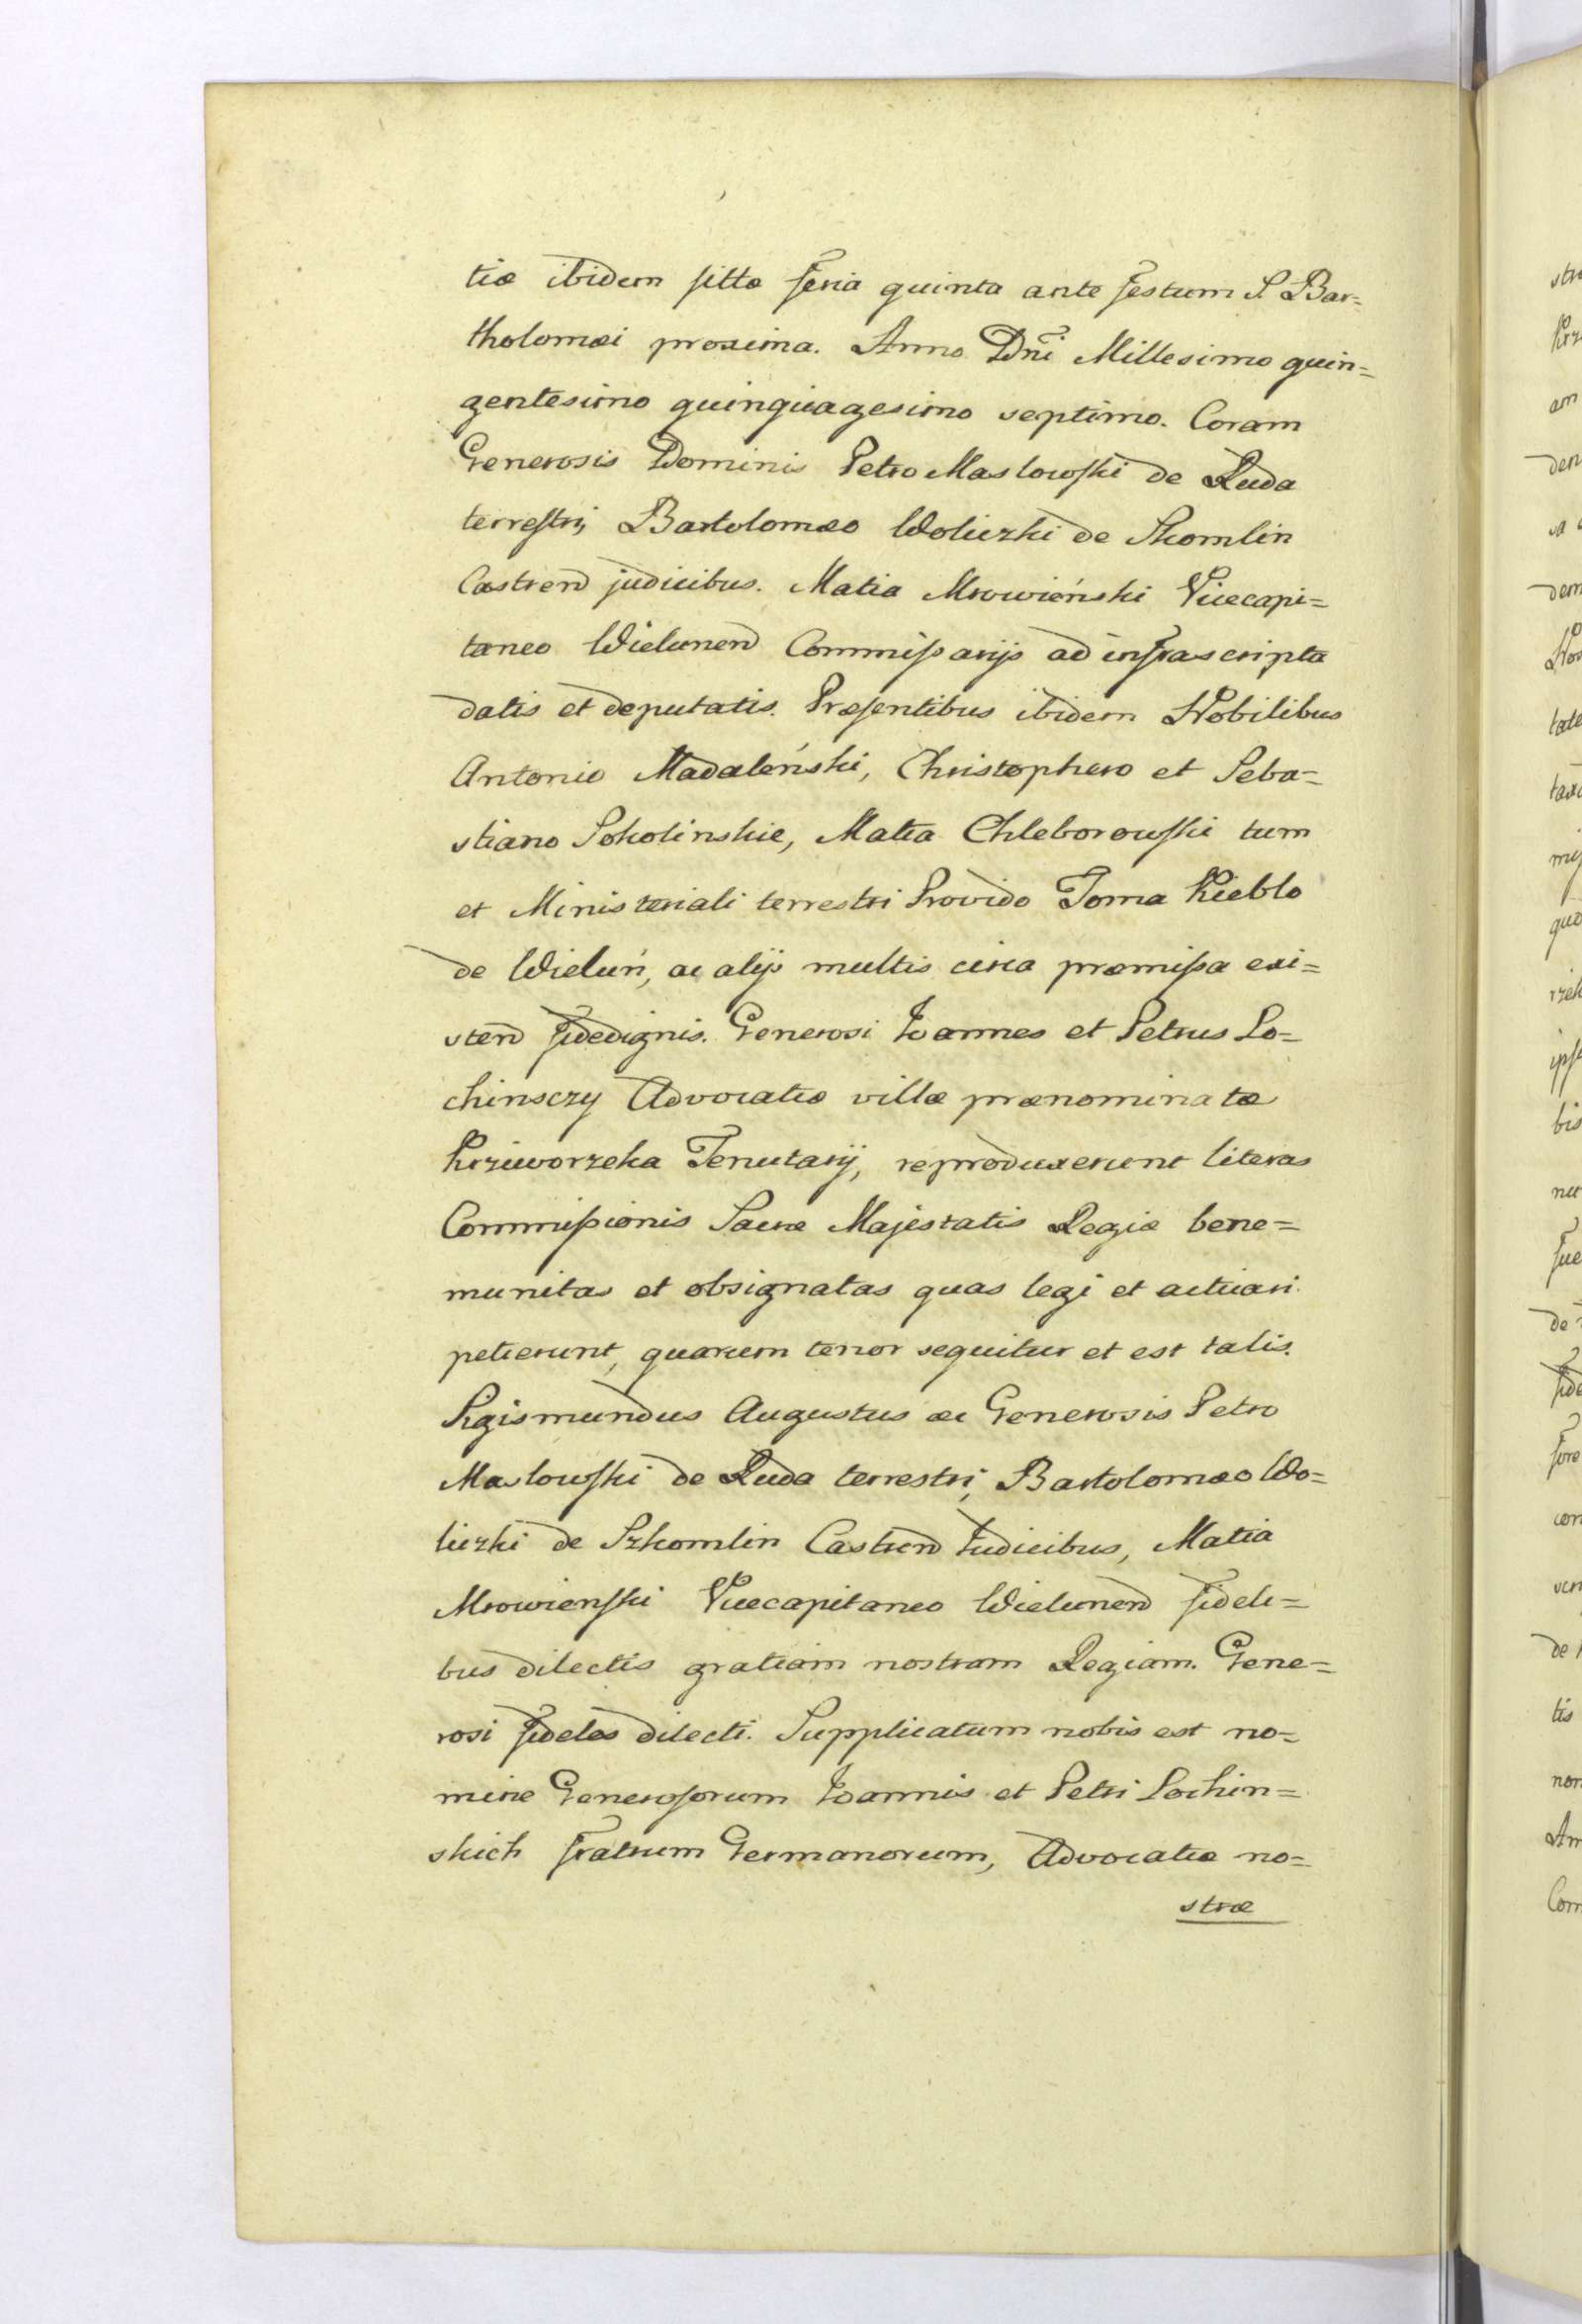 tiæ ibidem sittæ feria quinta ante festum S. Bar=
tholomæi proxima. Anno Dni Millesimo quin=
gentesimo quinquagesimo septimo. Coram
Generosis Dominis Petro Maslowski de Ruda
terrestri, Bartolomæo Woliczki de Skomlin
Castren judicibus. Matia Mrowieński Vicecapi=
taneo Wielunen Commissarijs ad infrascripta
datis et deputatis. Præsentibus ibidem Nobilibus
Antonio Madaleński, Christophero et Seba=
stiano Sokolinskie, Matia Chleborowski tum
et Ministeriali terrestri Provido Toma Kieblo
de Wieluń, ac alijs multis circa præmissa exi=
sten fidedignis. Generosi Joannes et Petrus Lo=
chinsczy Advocatiæ villæ prænominatæ
Krziworzeka Tenutarij, reproduxerunt literas
Commissionis Sacræ Majestatis Regiæ bene=
munitas et obsignatas quas legi et actuari
petierunt, quarum tenor sequitur et est talis.
Sigismundus Augustus ac Generosis Petro
Maslowski de Ruda terrestri, Bartolomæo Wo=
liczki de Szkomlin Castren Judicibus, Matia
Mrowienski Vicecapitaneo Wielunen fideli=
bus dilectis gratiam nostram Regiam. Gene=
rosi fideles dilecti. Supplicatum nobis est no=
mine Generosorum Joannis et Petri Lochin=
skich fratrum Germanorum, Advocatiæ no=
stræ